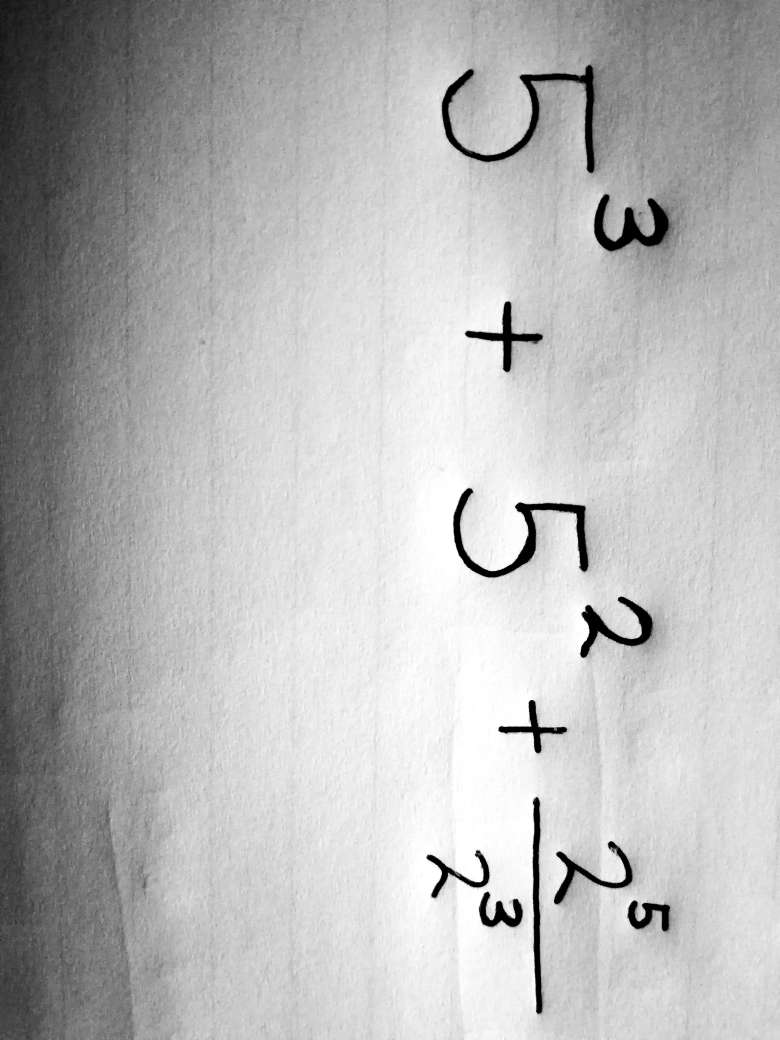 5³ + 5² + 2⁵/2³